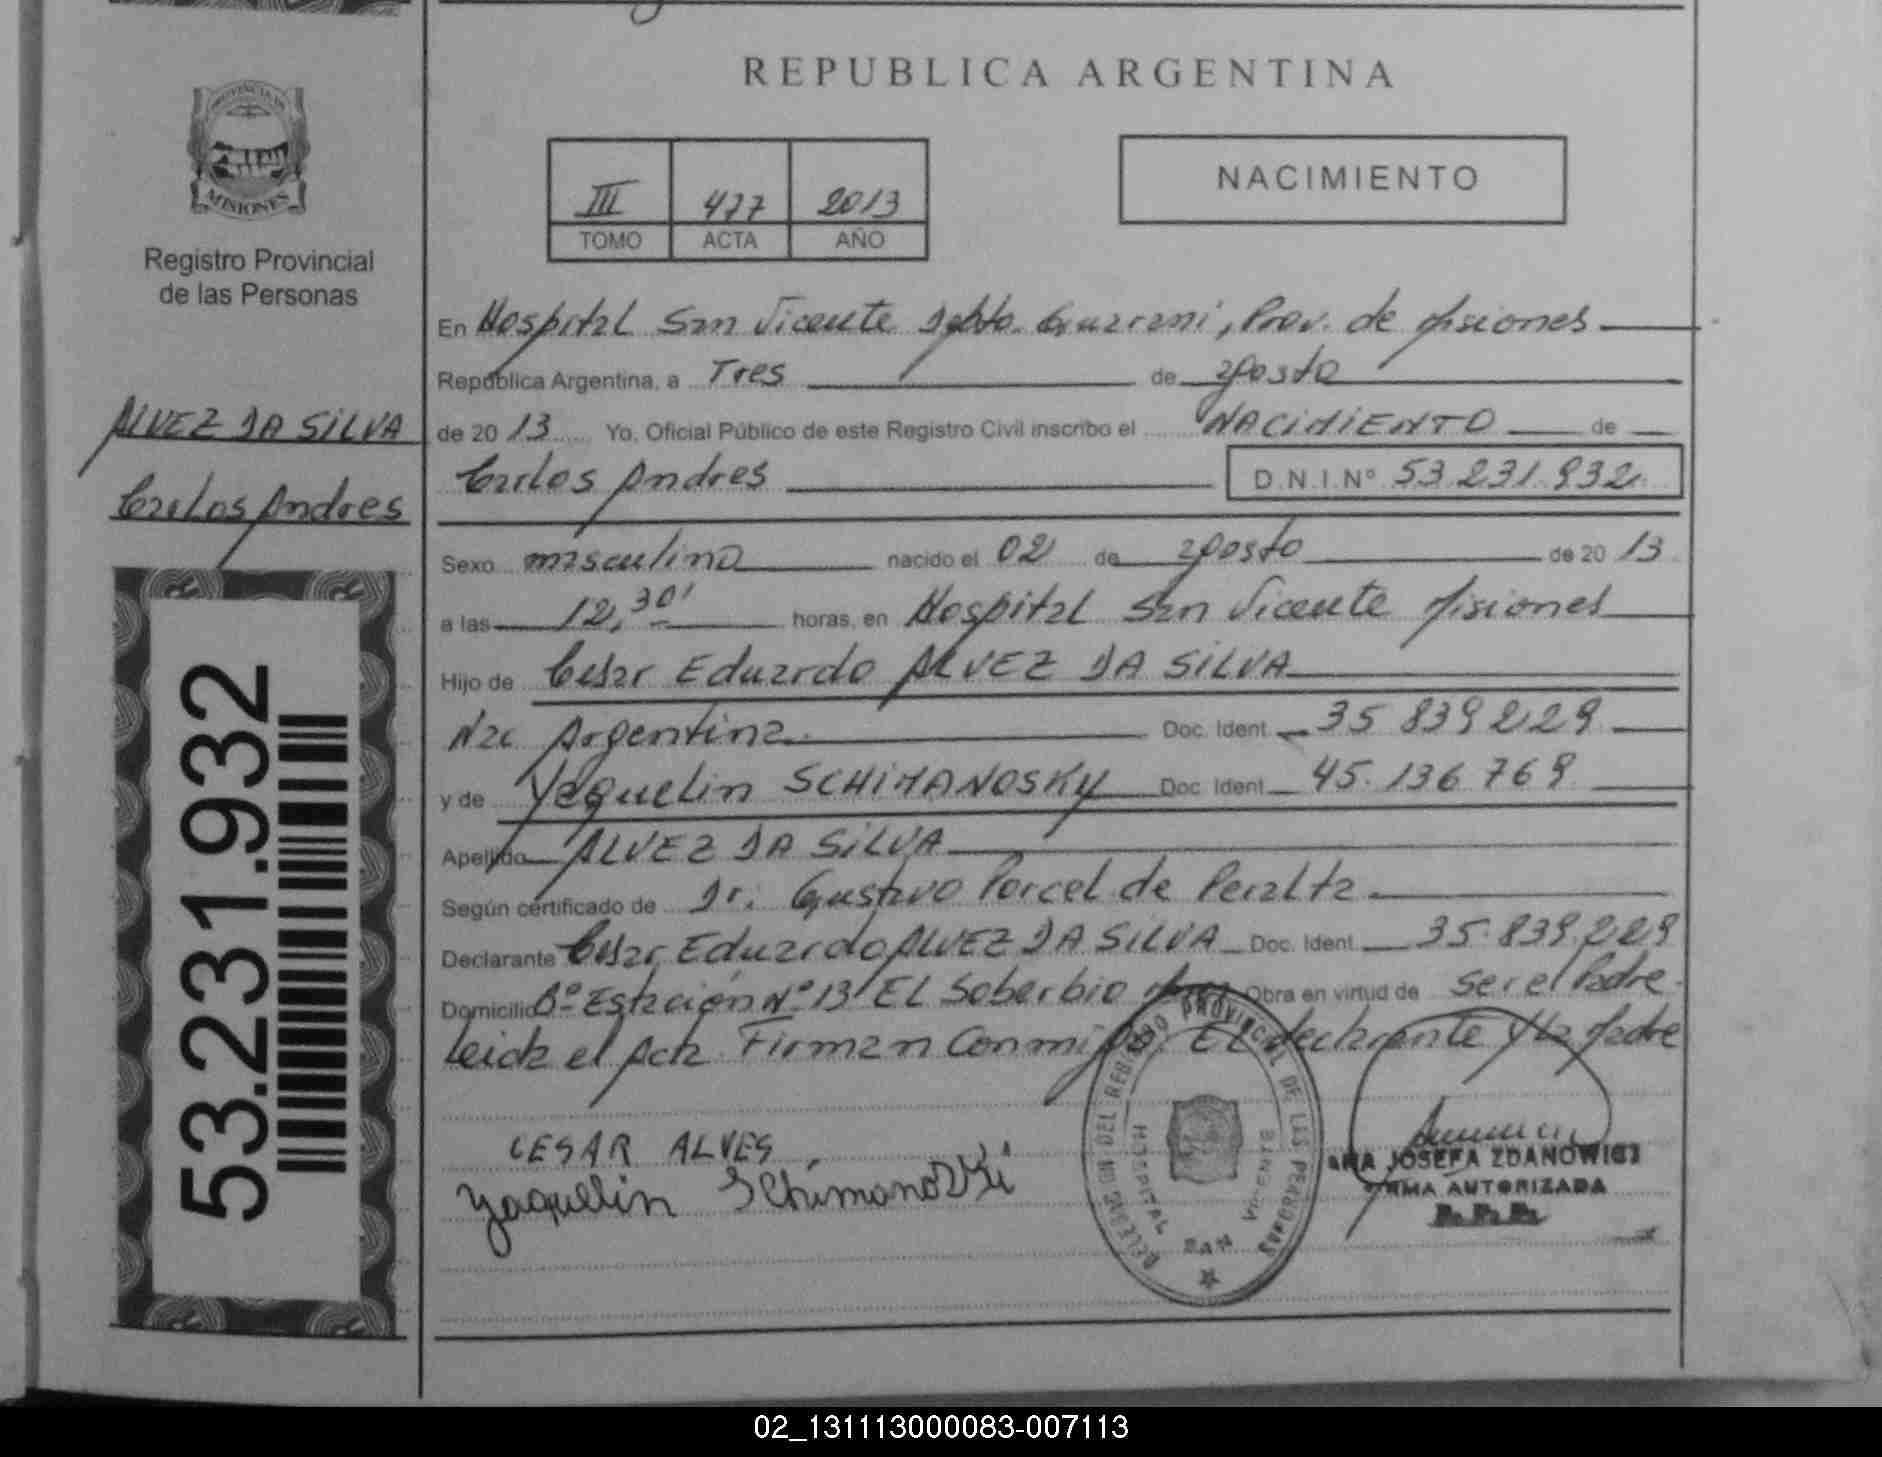 REPUBLICA ARGENTINA
PROVINCIA DE
MISIONES
Registro Provincial
de las Personas
III 477 2013
TOMO ACTA AÑO
NACIMIENTO
ALVEZ DA SILVA
Carlos Andres
53.231.932
En Hospital San Vicente Dpto. Guarani, Prov. de Misiones
República Argentina, a Tres de agosto
de 20 13 Yo, Oficial Público de este Registro Civil inscribo el NACIMIENTO de
Carlos Andres D.N.I.Nº 53.231.932
Sexo masculino nacido el 02 de agosto de 20 13
a las 12,30' horas, en Hospital San Vicente Misiones
Hijo de Cesar Eduardo ALVEZ DA SILVA
Nac Argentina Doc. Ident. 35 839 229
y de Yaquelin SCHIMANOSKY Doc. Ident. 45.136 769
Apellido ALVEZ DA SILVA
Según certificado de Dr: Gustavo Porcel de Peralta
Declarante Cesar Eduardo ALVEZ DA SILVA Doc. Ident. 35.839.229
Domicilio Bº Estación Nº 13 EL Soberbio Obra en virtud de ser el Padre
Leida el Acta Firman Conmigo, El declarante y la Madre
CESAR ALVES
Yaquelin Schimanozki
DELEGACION DEL REGISTRO PROVINCIAL DE LAS PERSONAS
HOSPITAL SAN VICENTE
ANA JOSEFA ZDANOWICZ
FIRMA AUTORIZADA
02_131113000083-007113